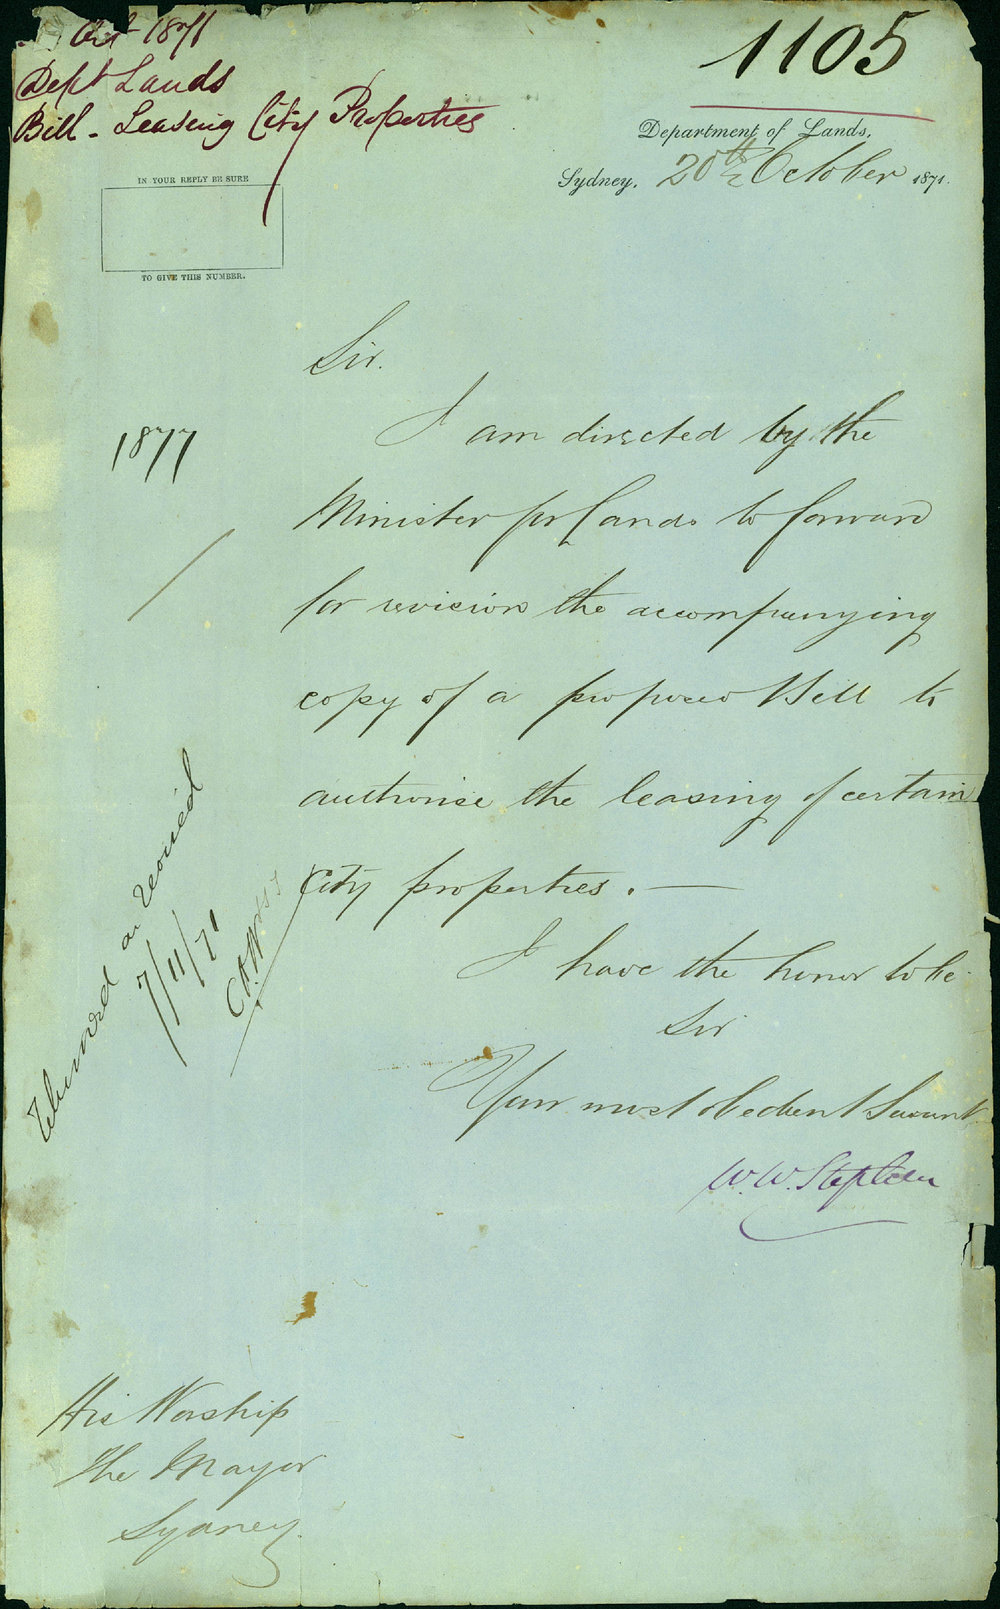 Oct 1871
Dept Lands
Bill - Leasing City Properties
1105
Department of Lands,
Sydney, 20th October 1871.
IN YOUR REPLY BE SURE
TO GIVE THIS NUMBER.
Sir.
1877
I am directed by the
Minister for Lands to forward
for revision the accompanying
copy of a proposed Bill to
authorise the leasing of certain
City properties. —
I have the honor to be
Sir
Your most obedient Servant
W. W. Stephen
Returned as revised
7/11/71
His Worship
The Mayor
Sydney.